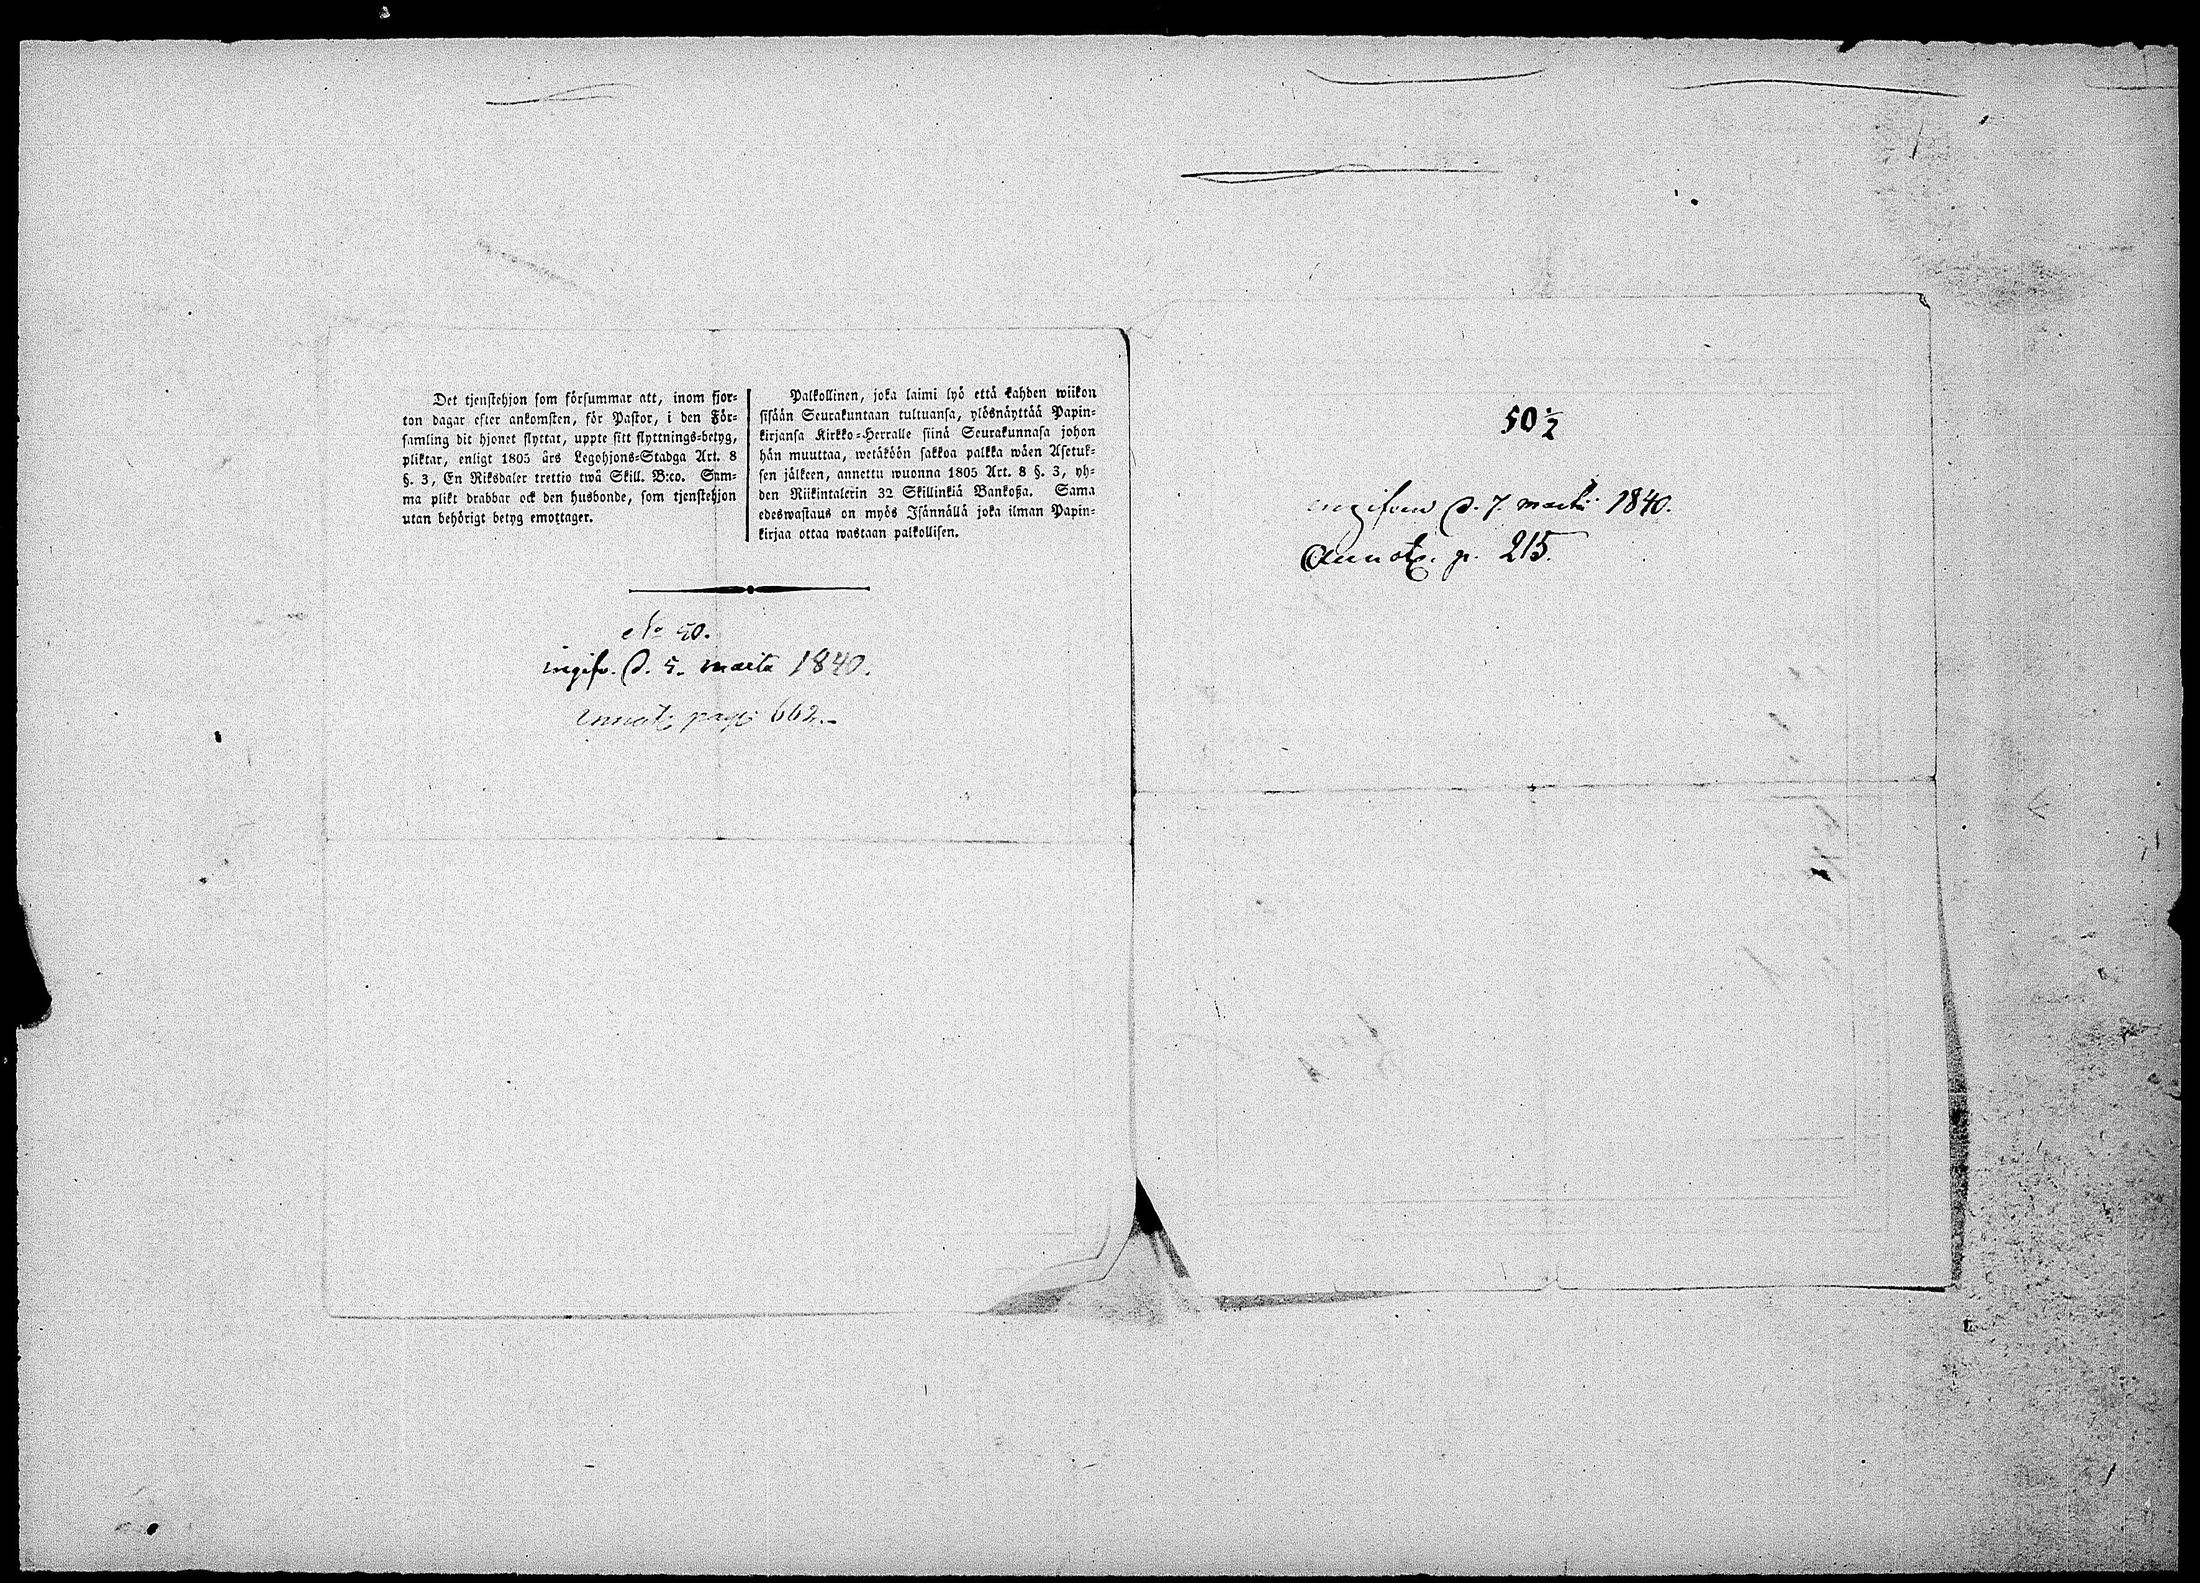 Det tjenstehjon som försummar att, inom fjor-
ton dagar efter ankomsten, för Pastor, i den För-
samling dit hjonet flyttat, uppte sitt flyttnings-betyg,
pliktar, enligt 1805 års Legohjons-Stadga Art. 8
§. 3, En Riksdaler trettio twå Skill. B:co. Sam-
ma plikt drabbar ock den husbonde, som tjenstehjon
utan behörigt betyg emottager.
Palkollinen, joka laimi lyö että kahden wiikon
sisään Seurakuntaan tultuansa, ylösnäyttää Papin-
kirjansa Kirkko-Herralle siinä Seurakunnasa johon
hän muuttaa, wetäköön sakkoa palkka wäen Asetuk-
sen jälkeen, annettu wuonna 1805 Art. 8 §. 3, yh-
den Riikintalerin 32 Skillinkiä Bankoßa. Sama
edeswastaus on myös Isännällä joka ilman Papin-
kirjaa ottaa wastaan palkollisen.
No 50.
ingifv. d. 5. martii 1840.
annot: pag: 662.
50 ½
ingifven d. 7 martii 1840.
Annot. p. 215.